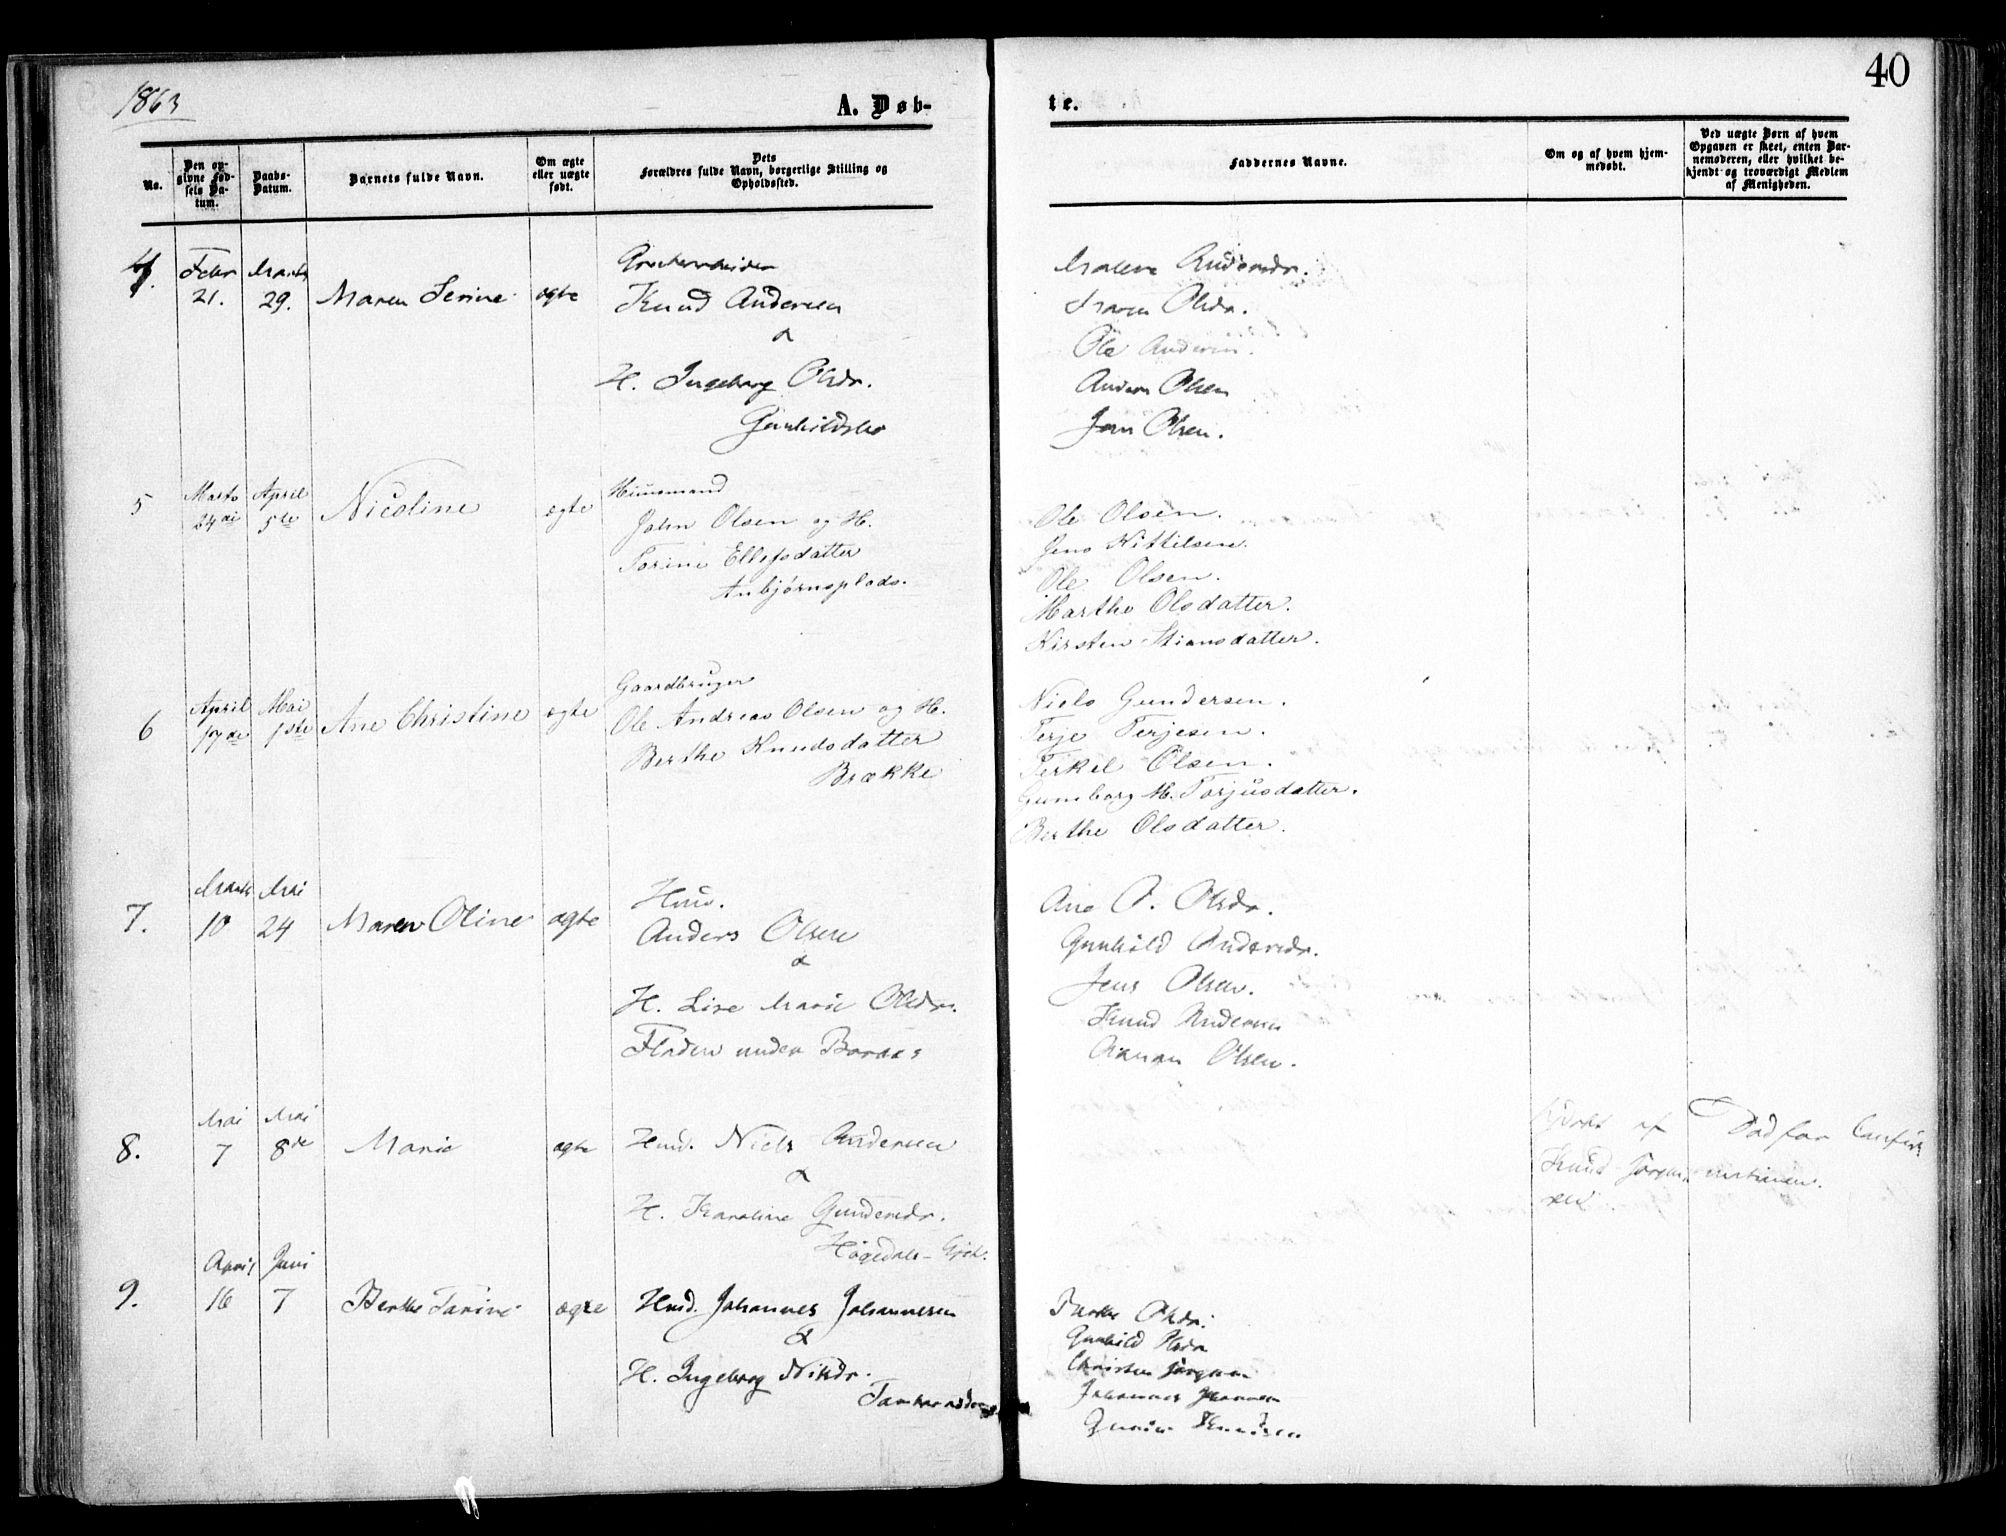 1863
A. Døb-
No.
Den op-
givne Fød-
sels Da-
tum.
Daabs-
Datum.
Barnets fulde Navn.
Om ægte
eller uægte
født.
Dets
Forældres fulde Navn, borgerlige Stilling og
Opholdssted.
4.
Febr
21.
Marts
29.
Maren Serine
ægte
Knud Andersen
&
H. Ingeborg Olsdr.
5
Marts
24de
April
5te
Nicoline
ægte
Huusmand
John Olsen og H.
Torine Ellefsdatter
Anbjørnsplads.
6
April
17de
Mai
1ste
Ane Christine
ægte
Gaardbruger
Ole Andreas Olsen og H.
Berthe Knudsdatter
Brække
7.
Marts
10
Mai
24
Maren Oline
ægte
Huus.
Anders Olsen
&
H. Lise Marie Olsdr.
Floden under Boraas
8.
Mai
7
Mai
8de
Marie
ægte
Hmd. Niels Andersen
&
H. Karoline Gundersdr.
9.
April
16
Juni
7
Berthe Tarine
ægte
Hmd. Johannes Johannesen
&
H. Ingeborg Nilsdr.
40
te.
Faddernes Navne.
Om og af hvem hjem-
medøbt.
Ved uægte Børn af hvem
Opgaven er skeet, enten Bar-
nemoderen, eller hvilket be-
kjendt og troværdigt Medlem
af Menigheden.
Malene Andersdr.
Maren Olsdr.
Ole Andersen.
Anders Olsen
Jens Olsen.
Ole Olsen.
Jens Kittilsen.
Ole Olsen.
Marthe Olsdatter.
Kirsten Stiansdatter.
Niels Gundersen.
Terje Terjesen.
Terkel Olsen.
Gunborg M. Torjusdatter.
Berthe Olsdatter.
Ane O. Olsdr.
Gunhild Andersdr.
Jens Olsen.
Knud Andersen
Olsen.
Hjdøbt af
Knud Jørgen-
sen.
Død før Confir-
mationen.
Berthe Olsdr.
Gunhild Olsdr
Christen Jørgensen
Johannes Johannesen
Knudsen